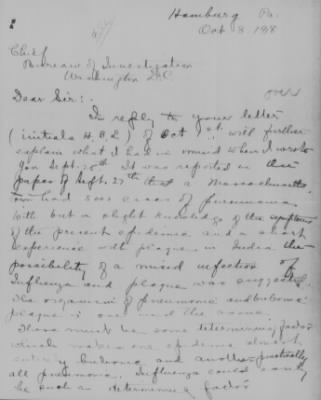 Hamburg Pa.
Oct 8. 1918
Chief
Bureau of Investigation
Washington D.C.
over
Dear Sir:.
In reply to your letter
(initials H,P,2) of Oct 1st. will further
explain what I had in mind when I wrote
you Sept. 28th It was reported in the
papers of Sept. 27th that a Massachusetts
town had 500 cases of pneumonia.
With but a slight knowledge of the symptoms
of the present epidemic and a short
experience with plague in India the
possibility of a mixed infection of
Influenza and plague was suggested.
The organism of pneumonic and bubonic
plague is one and the same.
There must be some determining factor
which makes one epidemic almost
entirely bubonic and another practically
all pneumonic. Influenza could easily
be such a determining factor